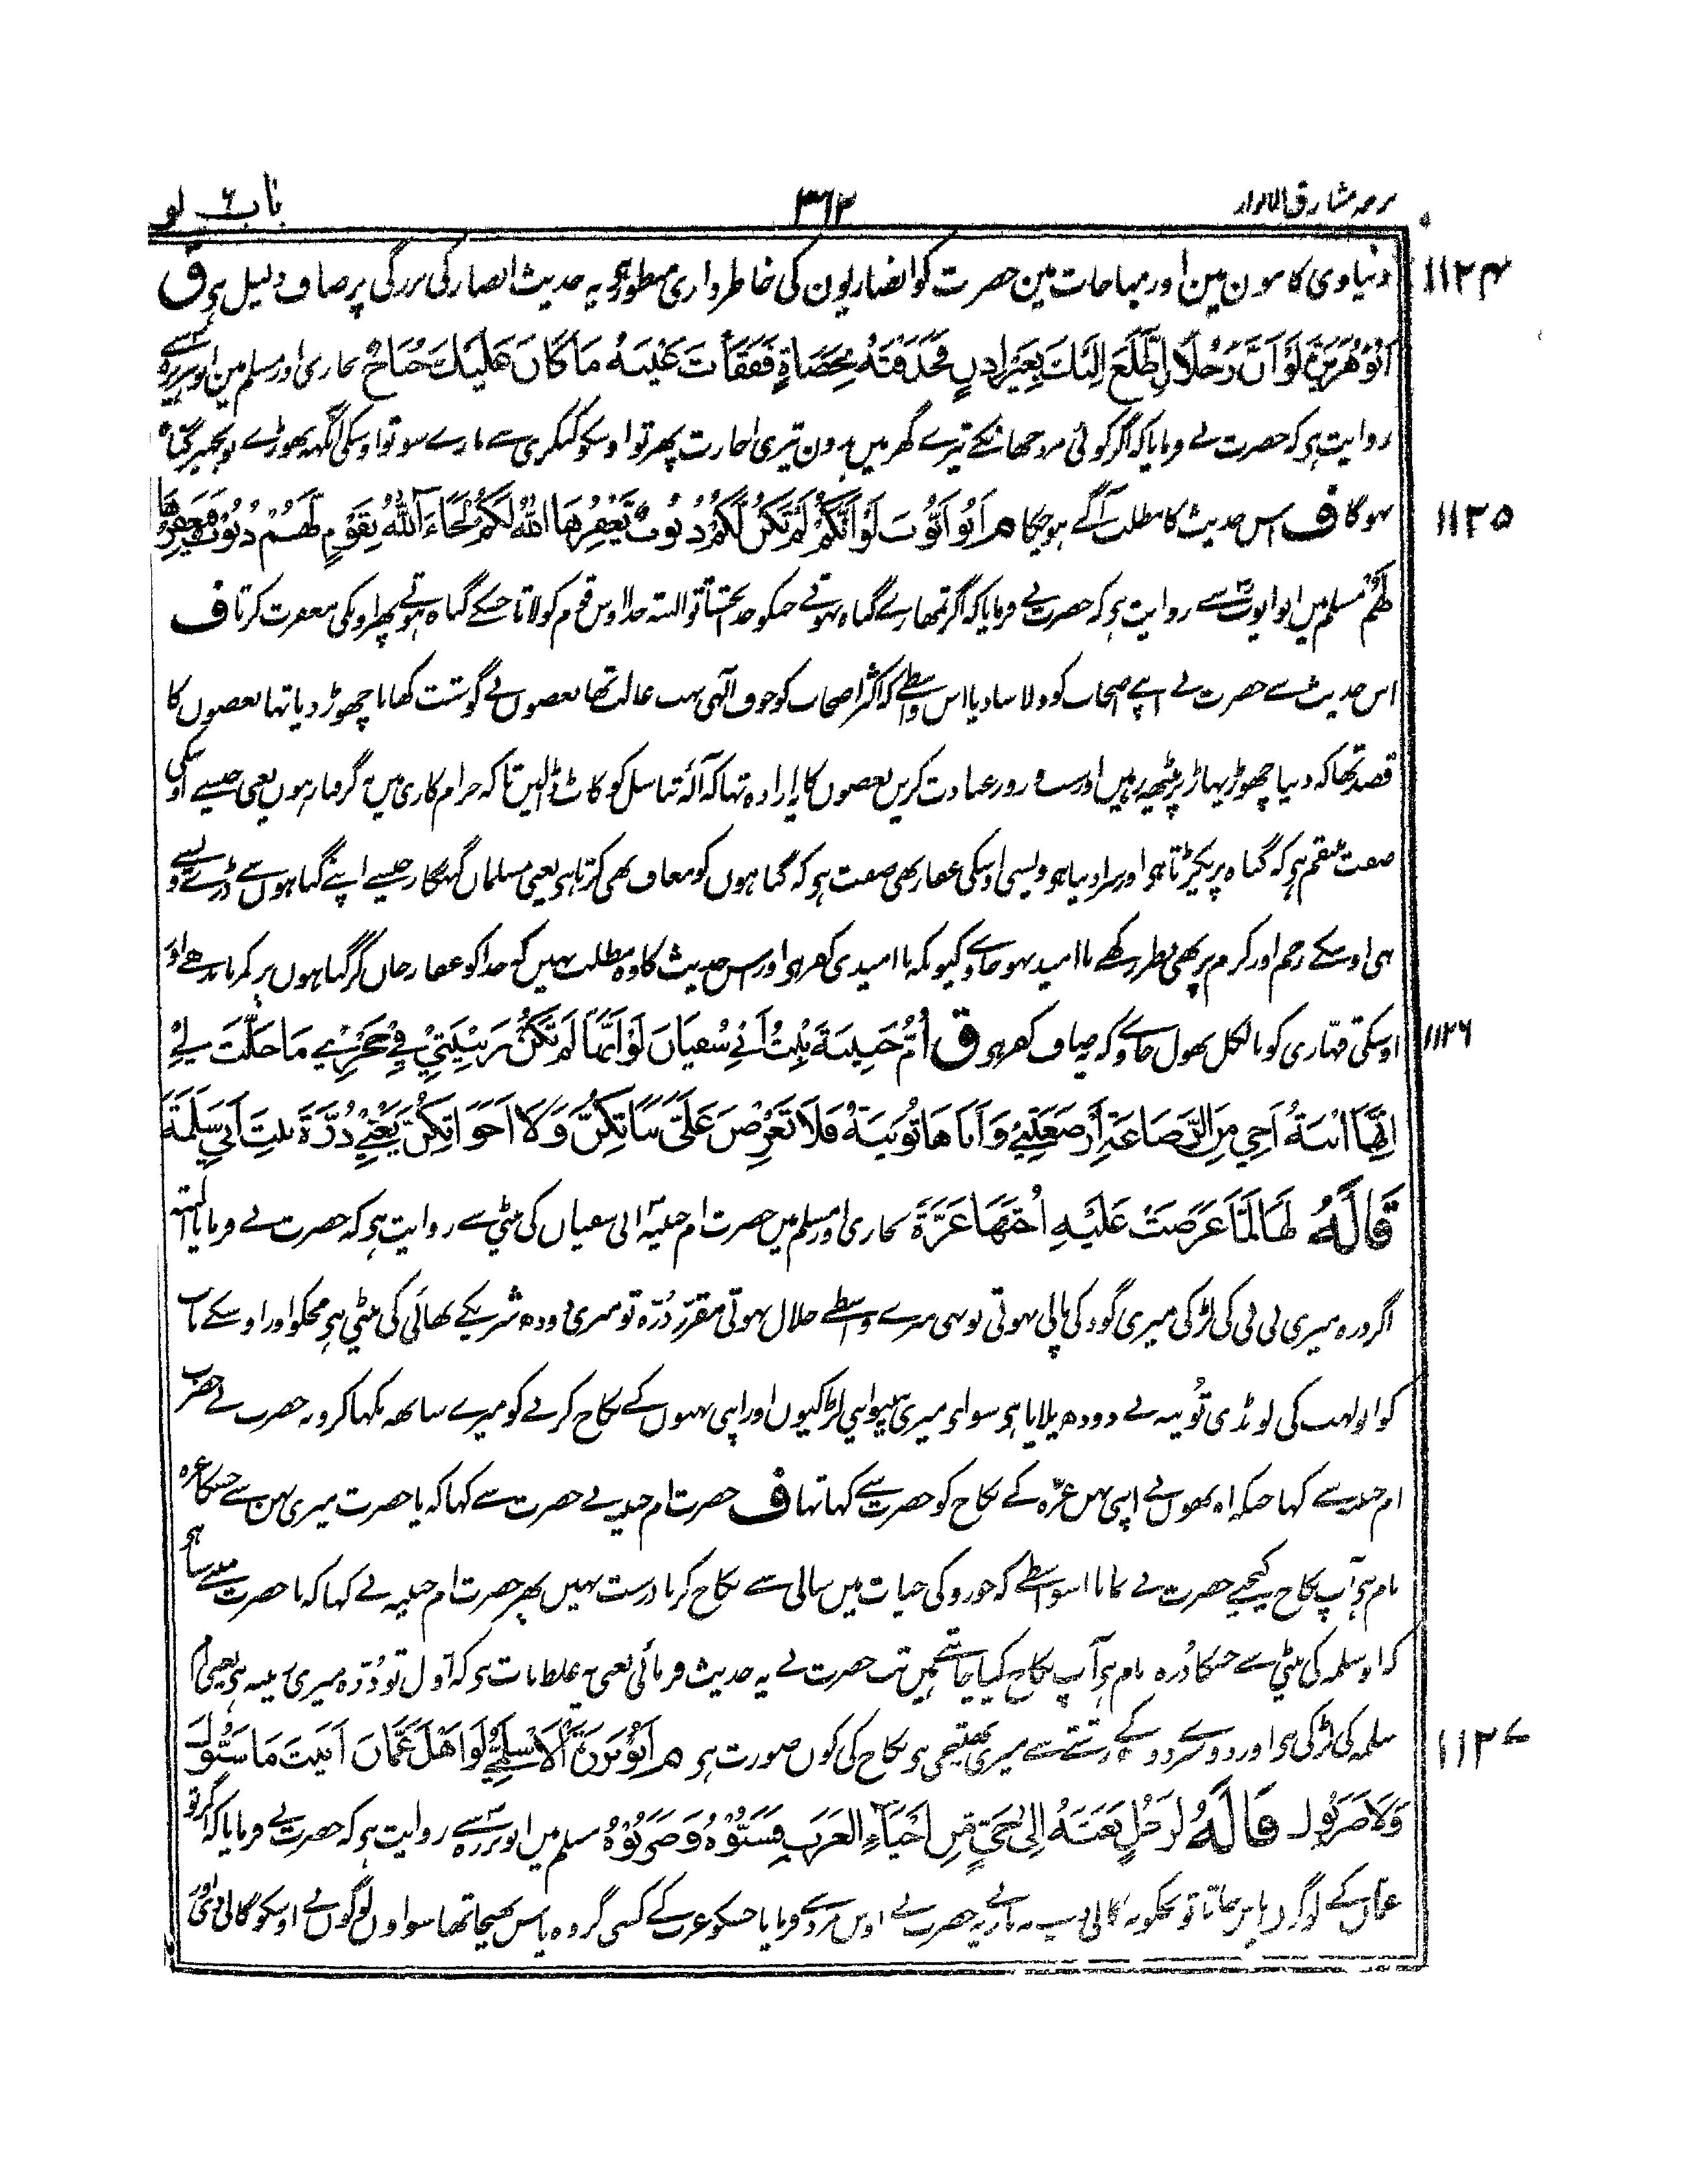 ترجمہ مشارق الانوار ۳۶۲ باب ۶ لو
۱۱۲۴ دنیاوی کامون مین اور مباحات مین حضرت کو انصاریون کی خاطرداری منظور ہی یہ حدیث انصار کی بزرگی پر صاف دلیل ہی ق
اَبُوْ هُرَيْرَةَ لَوْ اَنَّ رَجُلًا اِطَّلَعَ اِلَيْكَ بِغَيْرِ اِذْنٍ فَخَذَفْتَهُ بِحَصَاةٍ فَفَقَأْتَ عَيْنَهُ مَا كَانَ عَلَيْكَ جُنَاحٌ بخاری اور مسلم مین ابوہریرہ سے
روایت ہی کہ حضرت نے فرمایا کہ اگر کوئی مرد جھانکے تیرے گھر میں بدون تیری اجازت پھر تو اوسکو کنکری سے مارے سو تو اوسکی آنکھہ پھوڑے تو تجھپر گناہ
۱۱۲۵ نہوگا ف اس حدیث کا مطلب آگے ہو چکا م اَبُو اَيُّوْبَ لَوْ اَنَّكُمْ لَمْ تَكُنْ لَكُمْ ذُنُوْبٌ يَغْفِرُهَا اللّٰهُ لَكُمْ لَجَاءَ اللّٰهُ بِقَوْمٍ لَهُمْ ذُنُوْبٌ فَيَغْفِرُهَا
لَهُمْ مسلم میں ابو ایوب سے روایت ہی کہ حضرت نے فرمایا کہ اگر تمھارے گناہ نہوتے جسکو خدا بخشتا تو البتہ خدا اوس قوم کو لاتا جسکے گناہ ہوتے پھر اونکی مغفرت کرتا ف
اس حدیث سے حضرت نے اپنے اصحاب کو دلاسا دیا اس واسطے کہ اکثر اصحاب کو خوف الٰہی بہت غالب تھا بعضوں نے گوشت کھانا چھوڑ دیا تھا بعضوں کا
قصد تھا کہ دنیا چھوڑ پہاڑ پر بیٹھ رہیں اور شب و روز عبادت کریں بعضوں کا یہ ارادہ تھا کہ آلۂ تناسل کو کاٹ ڈالیں تا کہ حرام کاری میں نہ گرفتار ہوں یعنی جیسے اوسکی
صفت منتقم ہی کہ گناہ پر پکڑتا ہی اور سزا دیتا ہی ویسی اوسکی غفار بھی صفت ہی کہ گناہوں کو معاف بھی کرتا ہی یعنی مسلمان گنہگار جیسے اپنے گناہوں سے ڈرے ویسے
ہی اوسکے رحم اور کرم پر بھی نظر رکھے ناامید نہو جاوے کیونکہ ناامیدی کفر ہی اور اس حدیث کا وہ مطلب نہیں کہ خدا کو غفار جان کر گناہوں پر کمر باندھے اور
۱۱۲۶ اوسکی قہاری کو بالکل بھول جاوے کہ یہ صاف کفر ہی ق اُمُّ حَبِيْبَةَ بِنْتُ اَبِيْ سُفْيَانَ لَوْ اَنَّهَا لَمْ تَكُنْ رَبِيْبَتِيْ فِيْ حَجْرِيْ مَا حَلَّتْ لِيْ
اِنَّهَا ابْنَةُ اَخِيْ مِنَ الرَّضَاعَةِ اَرْضَعَتْنِيْ وَاَبَاهَا ثُوَيْبَةُ فَلَا تَعْرِضْنَ عَلَيَّ بَنَاتِكُنَّ وَلَا اَخَوَاتِكُنَّ يَعْنِيْ دُرَّةَ بِنْتَ اَبِيْ سَلَمَةَ
قَالَهُ لَهَا لَمَّا عَرَضَتْ عَلَيْهِ اُخْتَهَا عَزَّةَ بخاری اور مسلم میں حضرت ام حبیبہ ابی سفیان کی بیٹی سے روایت ہی کہ حضرت نے فرمایا البتہ
اگر درہ میری بی بی کی لڑکی میری گود کی پالی نہوتی تو بھی میرے واسطے حلال نہوتی مقرر دُرّہ تو میری دودھ شریک بھائی کی بیٹی ہی مجکو اور اوسکے باپ
کو ابو لہب کی لونڈی ثویبہ نے دودھ پلایا ہی سو ای میری بیبیو اپنی لڑکیوں اور اپنی بہنوں کے نکاح کرنے کو میرے ساتھ نکہا کرو یہ حضرت نے حضرت
ام حبیبہ سے کہا جبکہ اونھوں نے اپنی بہن عزّہ کے نکاح کو حضرت سے کہا تھا ف حضرت ام حبیبہ نے حضرت سے کہا کہ یا حضرت میری بہن سے جسکا عزہ
نام ہی آپ نکاح کیجیے حضرت نے نمانا اسواسطے کہ جورو کی حیات میں سالی سے نکاح کرنا درست نہیں پھر حضرت ام حبیبہ نے کہا کہ یا حضرت مینے سنا ہی
کہ ابو سلمہ کی بیٹی سے جسکا دُرہ نام ہی آپ نکاح کیا چاہتے ہیں تب حضرت نے یہ حدیث فرمائی یعنی یہ غلط بات ہی کہ اول تو دُرّہ میری ربیبہ ہی یعنی ام
۱۱۲۷ سلمہ کی لڑکی ہی اور دوسرے دودھ کے رشتے سے میری بھتیجی ہی نکاح کی کون صورت ہی م اَبُوْ بَرْزَةَ الْاَسْلَمِيُّ لَوْ اَهْلَ عُمَانَ اَتَيْتَ مَا سَبُّوْكَ
وَلَا ضَرَبُوْكَ قَالَهُ لِرَجُلٍ بَعَثَهُ اِلٰى حَيٍّ مِّنْ اَحْيَاءِ الْعَرَبِ فَسَبُّوْهُ وَضَرَبُوْهُ مسلم میں ابو برزہ سے روایت ہی کہ حضرت نے فرمایا کہ اگر تو
عمان کے لوگوں پاس جاتا تو تجکو نہ گالی دیتے نہ مارتے یہ حضرت نے اوس مرد سے فرمایا جسکو عرب کے کسی گروہ پاس بھیجا تھا سو اون لوگوں نے اوسکو گالی دی اور